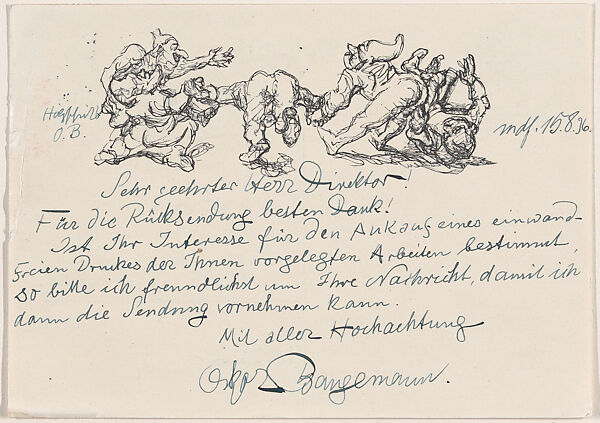 Holzschnitt
O.B.
mdf. 15.8.36.
Sehr geehrter Herr Direktor!
Für die Rüksendung besten Dank!
Ist Ihr Interesse für den Ankauf eines einwand-
freien Druckes der Ihnen vorgelegten Arbeiten bestimmt,
so bitte ich freundlichst um Ihre Nachricht, damit ich
dann die Sendung vornehmen kann.
Mit aller Hochachtung
Oskar Bangemann.